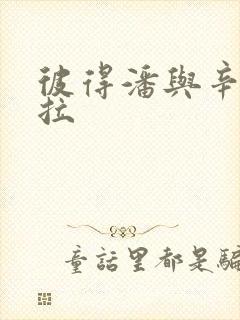 彼得潘與辛
拉
童話里都是騙